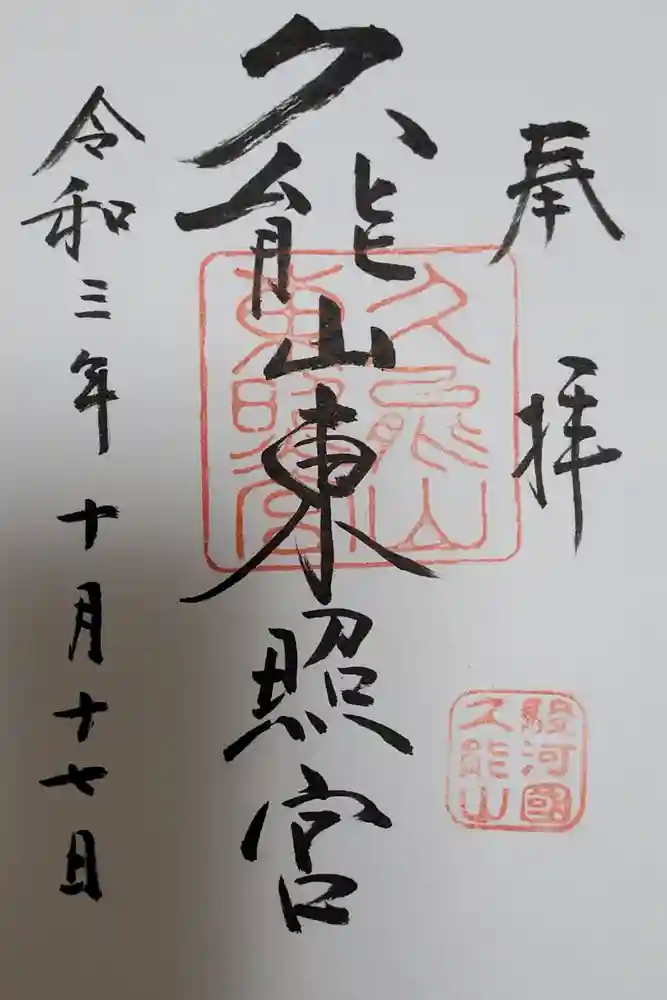 奉拝
久能山東照宮
久能山
東照宮
駿河國
久能山
令和三年十月十七日